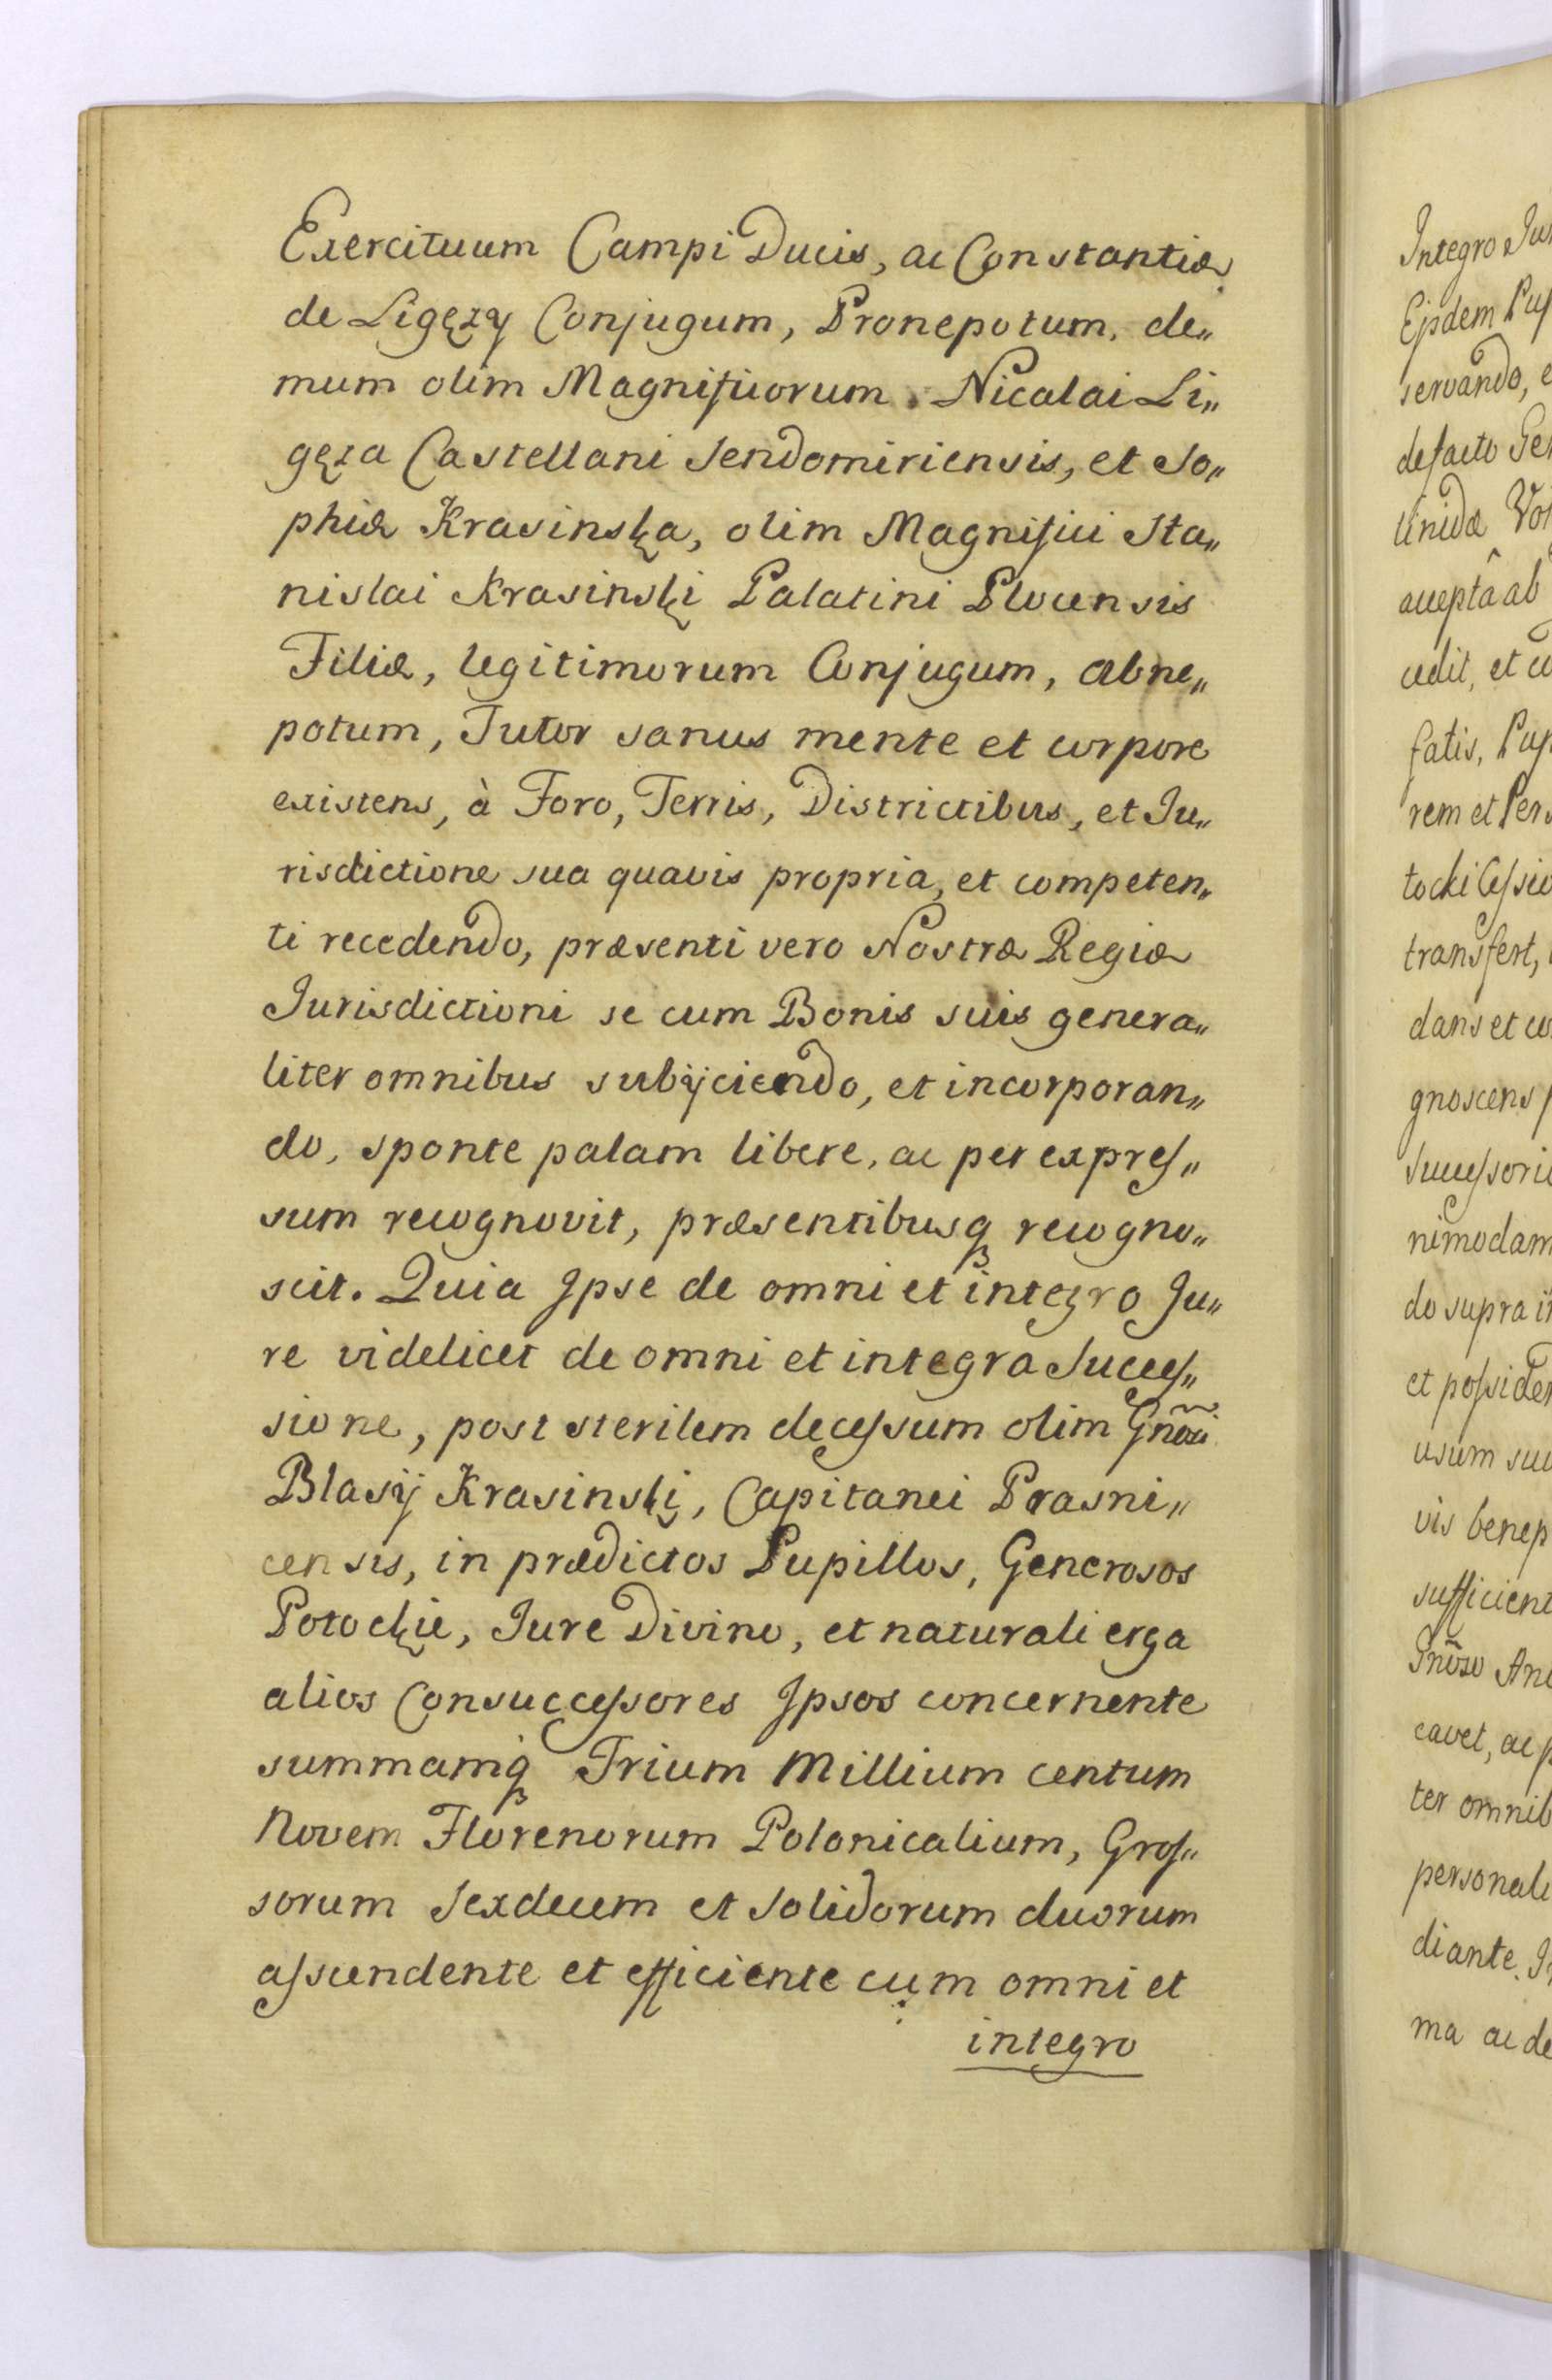 Exercituum Campi Ducis, ac Constantiæ
de Ligęzy Conjugum, Pronepotum, de„
mum olim Magnificorum Nicolai Li„
gęza Castellani Sendomiriensis, et So„
phiæ Krasinska, olim Magnifici Sta„
nislai Krasinski Palatini Plocensis
Filiæ, legitimorum Conjugum, abne„
potum, Tutor sanus mente et corpore
existens, à Foro, Terris, Districtibus, et Ju„
risdictione sua quavis propria, et competen„
ti recedendo, præsenti vero Nostræ Regiæ
Jurisdictioni se cum Bonis suis genera„
liter omnibus subijciendo, et incorporan„
do, sponte palam libere, ac per expres„
sum recognovit, præsentibusq recogno„
scit. Quia Ipse de omni et integro Ju„
re videlicet de omni et integra Succes„
sione, post sterilem decessum olim Gnosi
Blasij Krasinski, Capitanei Prasni„
censis, in prædictos Pupillos, Generosos
Potockie, Jure Divino, et naturali erga
alios Consuccessores Ipsos concernente
summamq Trium Millium centum
Novem Florenorum Polonicalium, Gros„
sorum Sexdecem et Solidorum duorum
asscendente et efficiente cum omni et
integro
Integro Ju
Ejsdem Pup
servando, e
defacto Ge
linidæ Vo
acceptâ ab
cedit, et co
fatis, Pup
rem et Pers
tocki Cessio
transfert,
dans et co
gnoscens
Successori
nimodam
do supra i
et possiden
usum su
vis benep
sufficient
Gnoso An
cavet, ac p
ter omnib
personali
diante. I
ma ac de